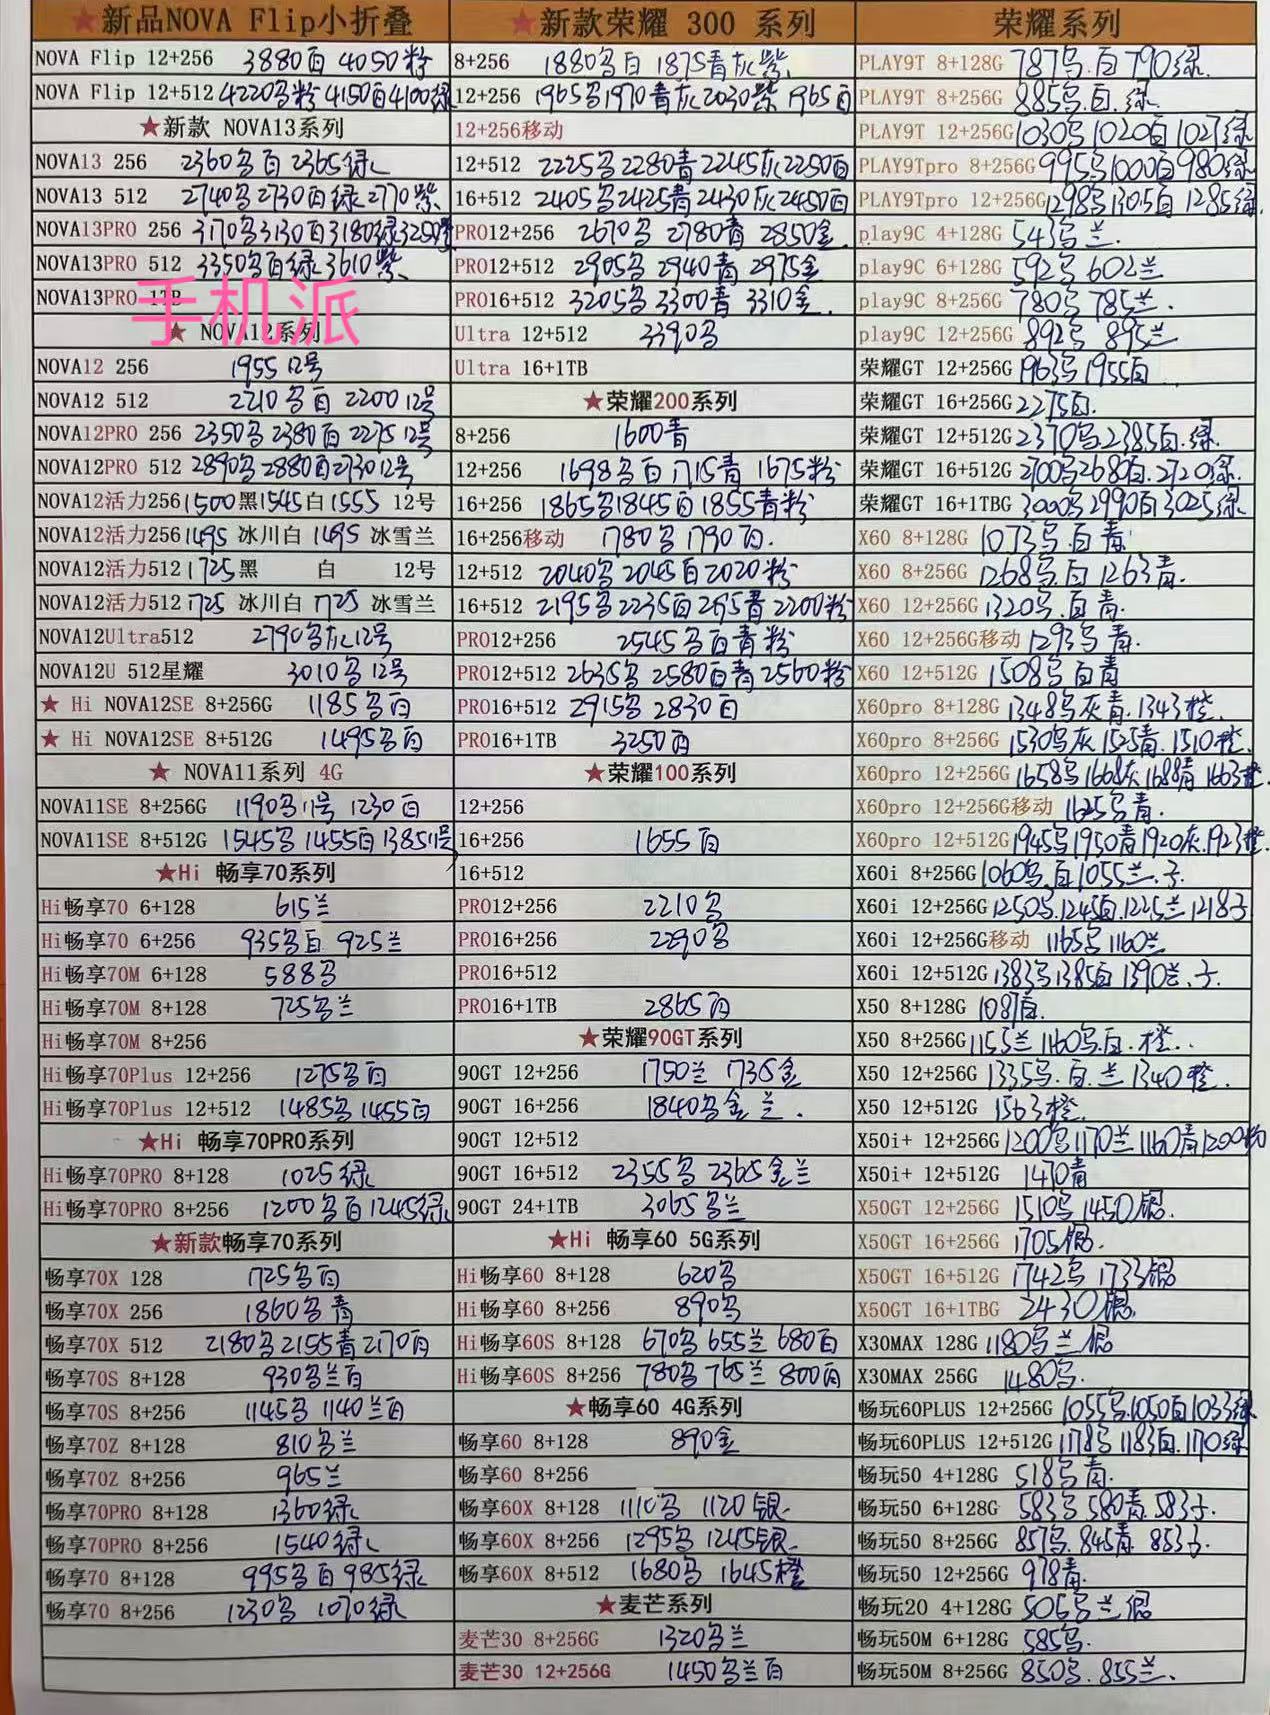 ★新品NOVA Flip小折叠
NOVA Flip 12+256 3880白 4050粉
NOVA Flip 12+512 4220乌粉 4150白 4100绿
★新款 NOVA13系列
NOVA13 256 2360乌白 2365绿
NOVA13 512 2740乌 2730白绿 2770紫
NOVA13PRO 256 3170乌 3130白 3180绿
NOVA13PRO 512 3350乌白绿 3610紫
NOVA13PRO 1TB
手机派
★ NOVA12系列
NOVA12 256 1955 12号
NOVA12 512 2210乌白 2200 12号
NOVA12PRO 256 2350乌 2380白 2275 12号
NOVA12PRO 512 2890乌 2880白 2730 12号
NOVA12活力256 1500黑 1545白 1555 12号
NOVA12活力256 1495 冰川白 1495 冰雪兰
NOVA12活力512 1725黑 白 12号
NOVA12活力512 1725 冰川白 1725 冰雪兰
NOVA12Ultra512 2790乌灰12号
NOVA12U 512星耀 3010乌12号
★ Hi NOVA12SE 8+256G 1185乌白
★ Hi NOVA12SE 8+512G 1495乌白
★ NOVA11系列 4G
NOVA11SE 8+256G 1190乌11号 1230白
NOVA11SE 8+512G 1545乌 1455白 1385 11号
★Hi 畅享70系列
Hi畅享70 6+128 615兰
Hi畅享70 6+256 935乌白 925兰
Hi畅享70M 6+128 588乌
Hi畅享70M 8+128 725乌兰
Hi畅享70M 8+256
Hi畅享70Plus 12+256 1275乌白
Hi畅享70Plus 12+512 1485乌 1455白
★Hi 畅享70PRO系列
Hi畅享70PRO 8+128 1025绿
Hi畅享70PRO 8+256 1200乌白 1245绿
★新款畅享70系列
畅享70X 128 1725乌白
畅享70X 256 1860乌青
畅享70X 512 2180乌 2155青 2170白
畅享70S 8+128 930乌兰白
畅享70S 8+256 1145乌 1140兰白
畅享70Z 8+128 810乌兰
畅享70Z 8+256 965兰
畅享70PRO 8+128 1360绿
畅享70PRO 8+256 1540绿
畅享70 8+128 995乌白 985绿
畅享70 8+256 1230乌 1070绿
★新款荣耀 300 系列
8+256 1880乌白 1875青灰紫
12+256 1965乌 1970青灰 2030紫 1965白
12+256移动
12+512 2225乌 2280青 2245灰 2250白
16+512 2405乌 2425青 2430灰 2450白
PRO12+256 2670乌 2780青 2850金
PRO12+512 2905乌 2940青 2975金
PRO16+512 3205乌 3300青 3310金
Ultra 12+512 3390乌
Ultra 16+1TB
★荣耀200系列
8+256 1600青
12+256 1698乌白 1715青 1675粉
16+256 1865乌 1845白 1855青粉
16+256移动 1780乌 1790白.
12+512 2040乌 2045白 2020粉
16+512 2195乌 2235白 2195青 2200粉
PRO12+256 2545乌白青粉
PRO12+512 2635乌 2580白青 2560粉
PRO16+512 2915乌 2830白
PRO16+1TB 3250白
★荣耀100系列
12+256
16+256 1655白
16+512
PRO12+256 2210乌
PRO16+256 2290乌
PRO16+512
PRO16+1TB 2865白
★荣耀90GT系列
90GT 12+256 1750兰 1735金
90GT 16+256 1840乌金兰.
90GT 12+512
90GT 16+512 2355乌 2365金兰
90GT 24+1TB 3065乌兰
★Hi 畅享60 5G系列
Hi畅享60 8+128 620乌
Hi畅享60 8+256 890乌
Hi畅享60S 8+128 670乌 655兰 680白
Hi畅享60S 8+256 780乌 765兰 800白
★畅享60 4G系列
畅享60 8+128 890金
畅享60 8+256
畅享60X 8+128 1110乌 1120银
畅享60X 8+256 1295乌 1245银
畅享60X 8+512 1680乌 1645橙
★麦芒系列
麦芒30 8+256G 1320乌兰
麦芒30 12+256G 1450乌兰白
荣耀系列
PLAY9T 8+128G 787乌.白 790绿.
PLAY9T 8+256G 885乌.白.绿
PLAY9T 12+256G 1030乌 1020白 1027绿
PLAY9Tpro 8+256G 995乌 1000白 980绿
PLAY9Tpro 12+256G 1298乌 1305白 1285绿
play9C 4+128G 543乌兰.
play9C 6+128G 592乌 602兰
play9C 8+256G 780乌 785兰.
play9C 12+256G 892乌 895兰
荣耀GT 12+256G 1963乌 1955白
荣耀GT 16+256G 2275白.
荣耀GT 12+512G 2370乌.2385白.绿
荣耀GT 16+512G 2700乌 2680白.2720绿
荣耀GT 16+1TBG 3000乌 2990白 3025绿
X60 8+128G 1073乌.白 青
X60 8+256G 1268乌.白 1263青.
X60 12+256G 1320乌.白青.
X60 12+256G移动 1293乌 青.
X60 12+512G 1508乌 白青
X60pro 8+128G 1348乌灰青.1343橙.
X60pro 8+256G 1530乌灰 1525青.1510橙.
X60pro 12+256G 1658乌 1668灰 1688青 1663橙
X60pro 12+256G移动 1625乌青.
X60pro 12+512G 1945乌 1950青 1920灰.1923橙.
X60i 8+256G 1060乌.白 1055兰.子
X60i 12+256G 1250乌.1245白.1225兰 1218子
X60i 12+256G移动 1165乌 1160兰
X60i 12+512G 1383乌 1385白 1390兰.子.
X50 8+128G 1087白.
X50 8+256G 1155兰 1160乌.白.橙..
X50 12+256G 1335乌.白.兰 1340橙.
X50 12+512G 1563橙.
X50i+ 12+256G 1200乌 1170兰 1160青 1200粉
X50i+ 12+512G 1470青
X50GT 12+256G 1510乌 1450银.
X50GT 16+256G 1705银.
X50GT 16+512G 1742乌 1733银
X50GT 16+1TBG 2430银.
X30MAX 128G 1180乌兰银
X30MAX 256G 1480乌.
畅玩60PLUS 12+256G 1055乌.1050白 1033绿
畅玩60PLUS 12+512G 1178乌 1183白.1170绿
畅玩50 4+128G 518乌青.
畅玩50 6+128G 583乌 580青.583子.
畅玩50 8+256G 857乌.845青.853子.
畅玩50 12+256G 978青.
畅玩20 4+128G 506乌兰银
畅玩50M 6+128G 585乌.
畅玩50M 8+256G 850乌.855兰.